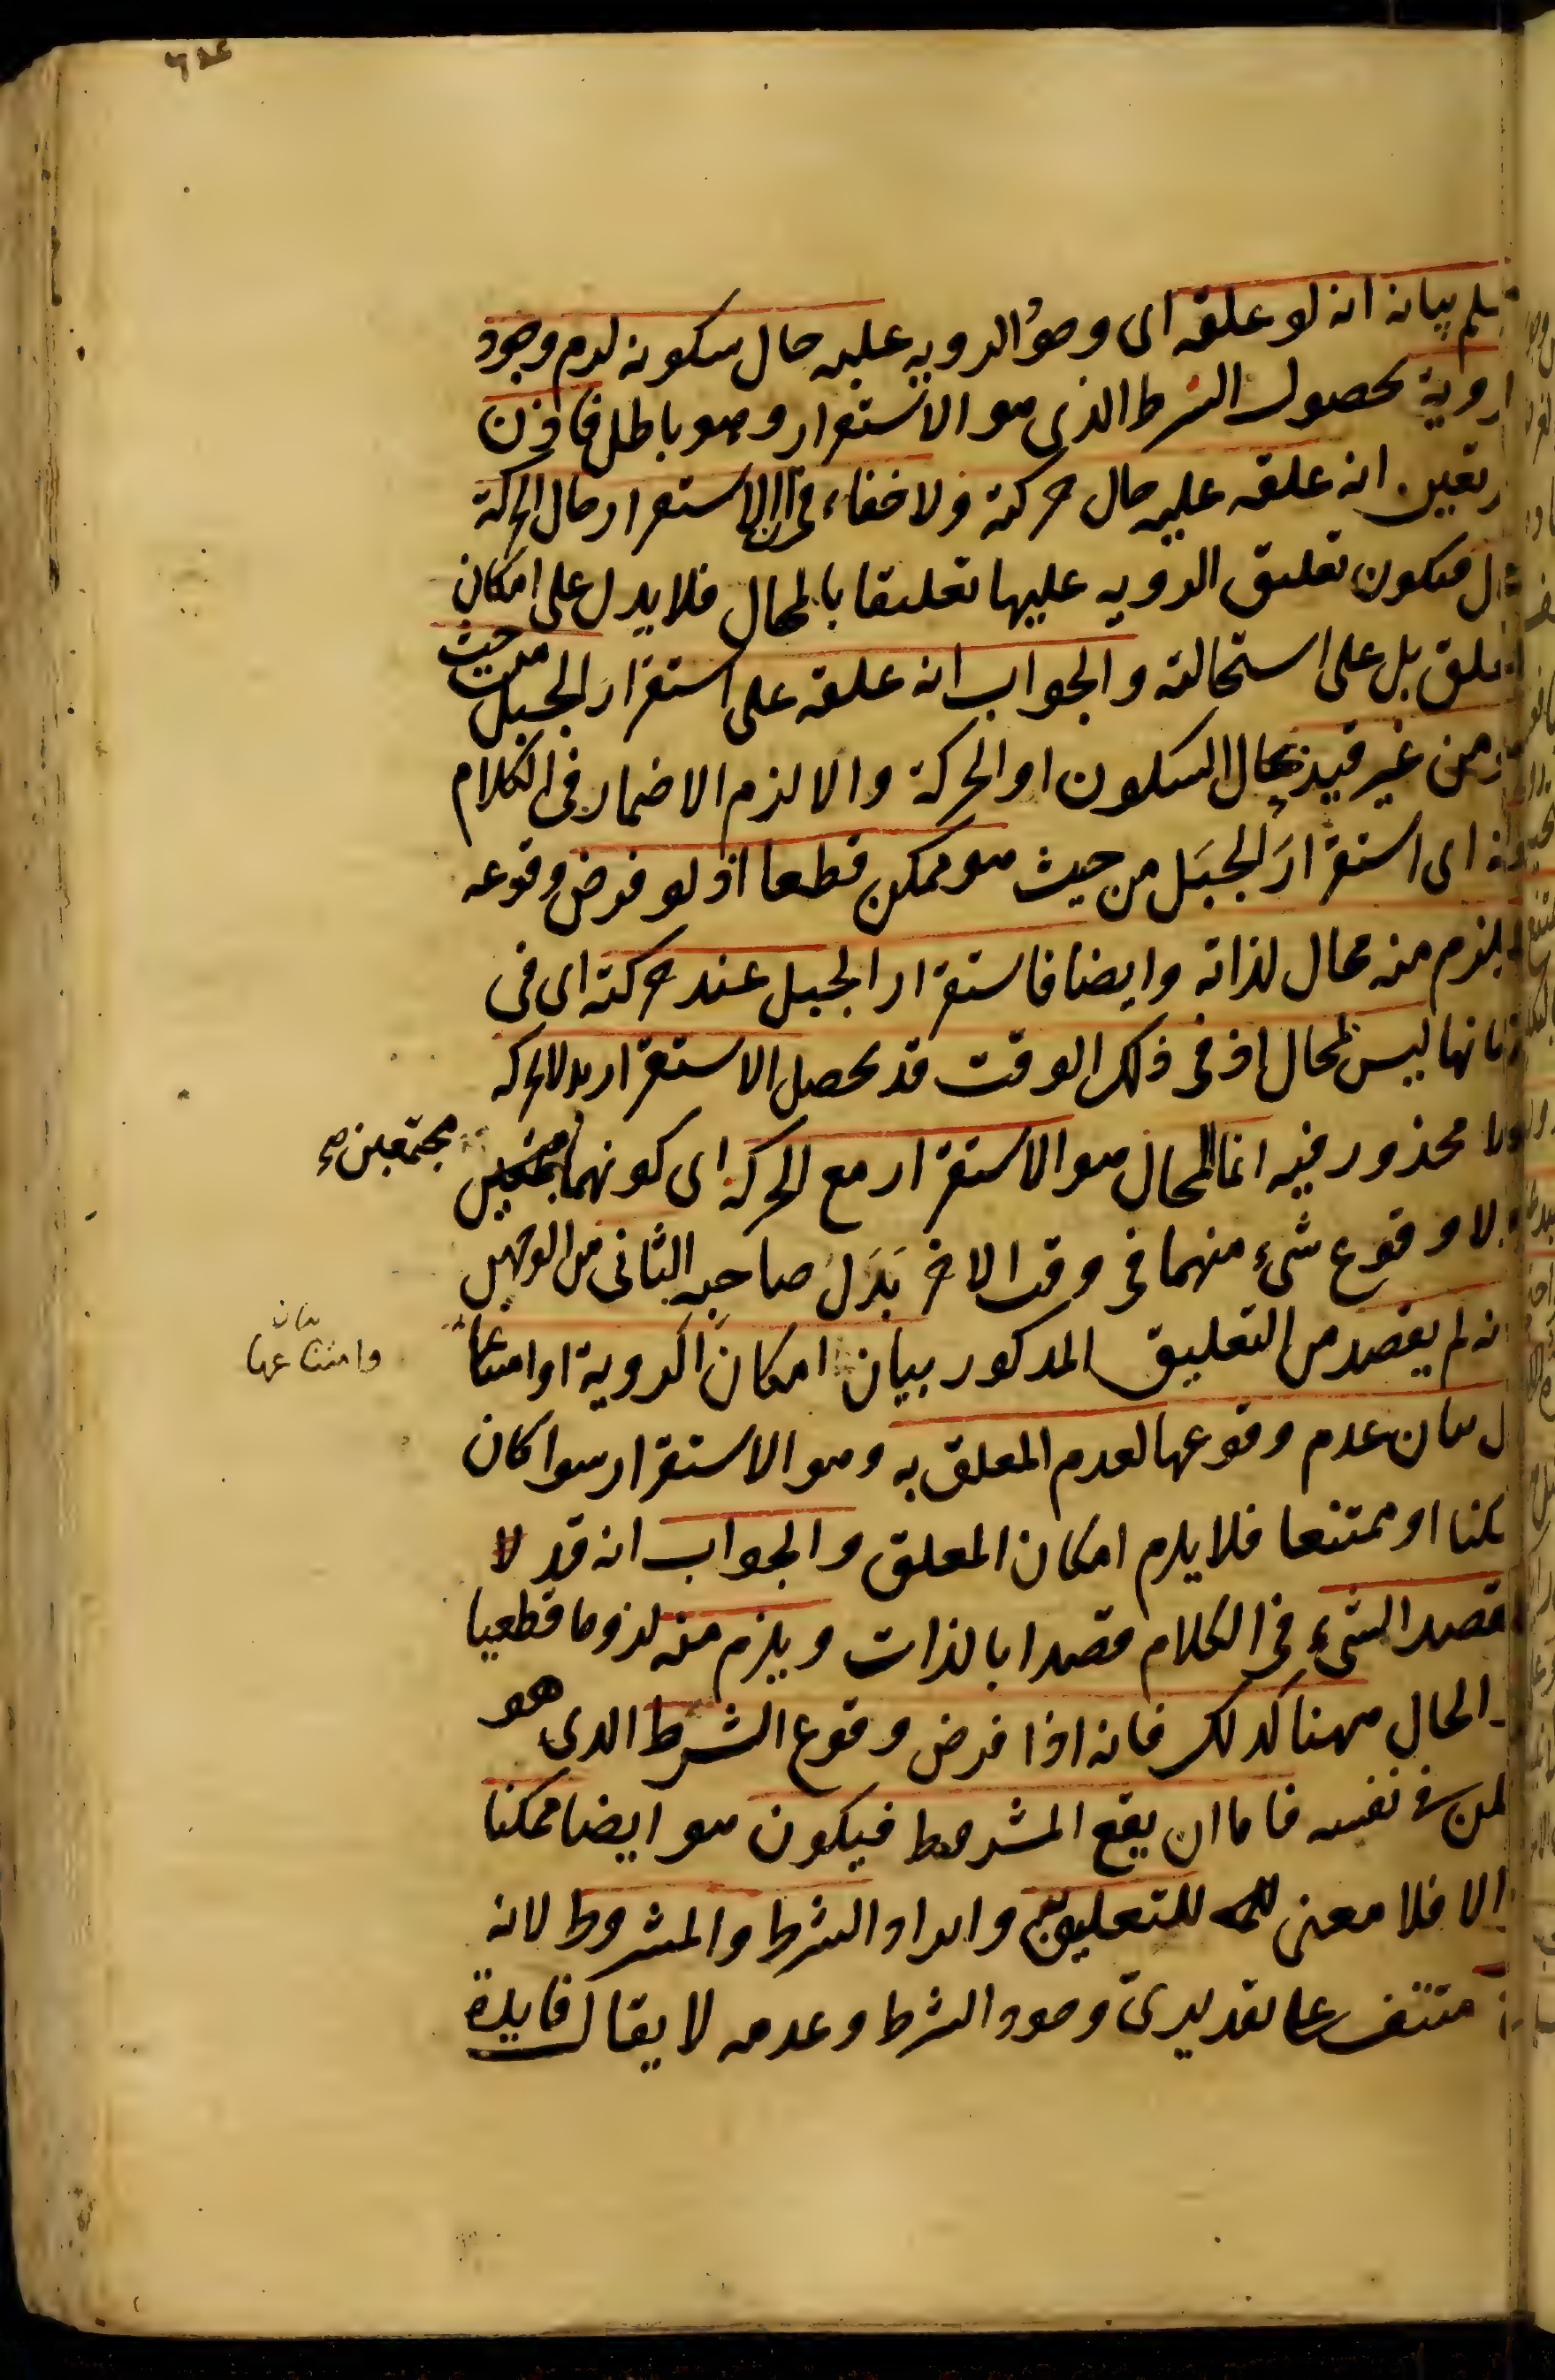 بيانه انه لو علقه اى وجود الرويه عليه حال سكونه لزم وجود
الروية لحصول الشرط الذى هو الاستقرار وهو باطل فاذن
تعين انه علقه عليه حال حركته ولا خفاء فى ان الاستقرار حال الحركة
فيكون تعليق الرويه عليها تعليقا بالمحال فلا يدل على امكان
المعلق بل على استحالته والجواب انه علقه على استقرار الجبل من حيث
هو من غير قيد بحال السكون او الحركة والا لزم الاضمار فى الكلام
اى استقرارَ الجبَل من حيث هو ممكن قطعا اذ لو فرض وقوعه
لم يلزم منه محال لذاته وايضا فاستقرار الجبل عند حركته اى فى
زمانها ليس بمحال اذ فى ذلك الوقت قد يحصل الاستقرار بدل الحركه
ولا محذور فيه انما المحال هو الاستقرار مع الحركة اى كونهما
مجتمعين صح
لا وقوع شىء منهما فى وقت الاخر بَدَل صاحبه الثانى من الوجهين
انه لم يقصد من التعليق المذكور بيان امكان الروية او امتناعها
وامتناعها
بيان
بل بيان عدم وقوعها لعدم المعلق به وهو الاستقرار سوا كان
ممكنا او ممتنعا فلا يلزم امكان المعلق والجواب انه قد لا
يقصد الشىء فى الكلام قصدا بالذات ويلزم منه لزوما قطعيا
والحال ههنا كذلك فانه اذا فرض وقوع الشرط الذى هو
ممكن فى نفسه فاما ان يقع المشروط فيكون هو ايضا ممكنا
والا فلا معنى للتعليق به وايراد الشرط والمشروط لانه
منتف على تقديرى وجود الشرط وعدمه لا يقال فايدة